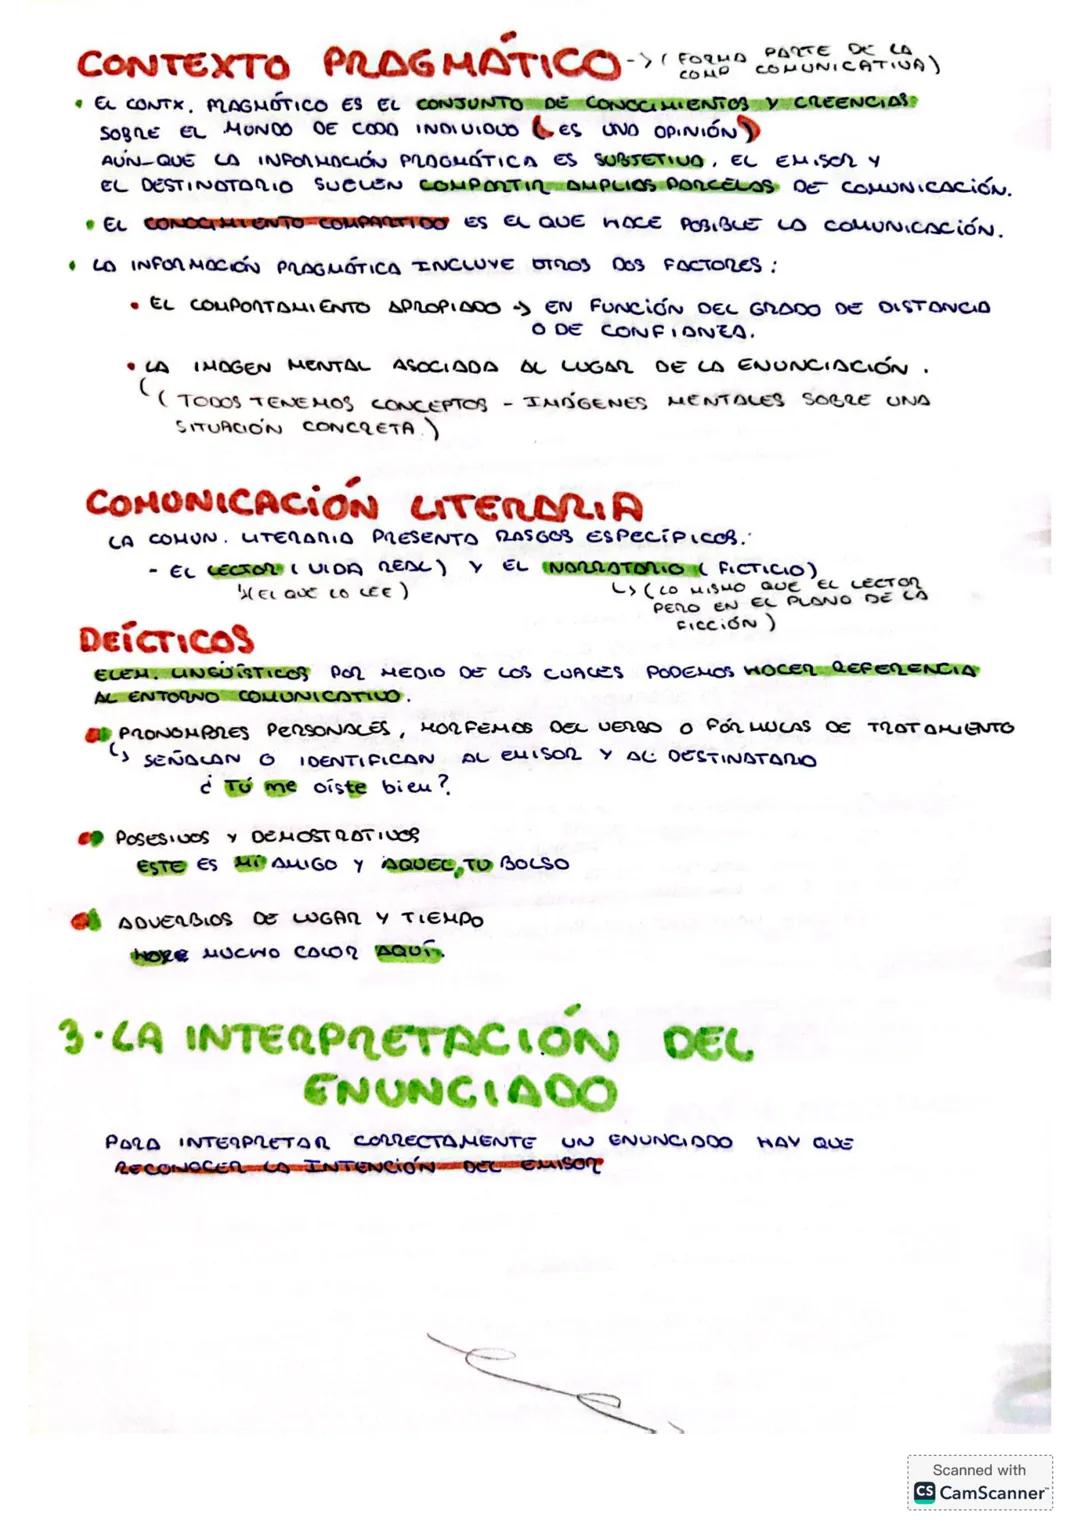 CONTEXTO PRAGMÁTICO -> ( FORMA PARTE DE LA
COMP COMUNICATIVA)
• EL CONTX. PRAGMÁTICO ES EL CONJUNTO DE CONOCIMIENTOS Y CREENCIAS
SOBRE EL MUNDO DE CADA INDIVIDUO (ES UNA OPINIÓN)
AÚN-QUE LA INFORMACIÓN PRAGMÁTICA ES SUBJETIVA, EL EMISOR Y
EL DESTINATARIO SUELEN COMPARTIR AMPLIAS PARCELAS DE COMUNICACIÓN.
• EL CONOCIMIENTO COMPARTIDO ES EL QUE HACE POSIBLE LA COMUNICACIÓN.
• LA INFORMACIÓN PRAGMÁTICA INCLUYE OTROS DOS FACTORES :
• EL COMPORTAMIENTO APROPIADO -> EN FUNCIÓN DEL GRADO DE DISTANCIA
O DE CONFIANZA.
• LA IMAGEN MENTAL ASOCIADA AL LUGAR DE LA ENUNCIACIÓN .
( TODOS TENEMOS CONCEPTOS - IMÁGENES MENTALES SOBRE UNA
SITUACIÓN CONCRETA.)
COMUNICACIÓN LITERARIA
LA COMUN. LITERARIA PRESENTA RASGOS ESPECÍFICOS.
- EL LECTOR ( VIDA REAL) Y EL NARRATARIO ( FICTICIO)
↳(EL QUE LO LEE )
↳ (LO MISMO QUE EL LECTOR
PERO EN EL PLANO DE LA
FICCIÓN )
DEÍCTICOS
ELEM. LINGÜÍSTICOS POR MEDIO DE LOS CUALES PODEMOS HACER REFERENCIA
AL ENTORNO COMUNICATIVO.
PRONOMBRES PERSONALES, MORFEMAS DEL VERBO O FÓRMULAS DE TRATAMIENTO
↳ SEÑALAN O IDENTIFICAN AL EMISOR Y AL DESTINATARIO
¿ Tú me oíste bien?
POSESIVOS Y DEMOSTRATIVOS
ESTE ES MI AMIGO Y AQUEL, TU BOLSO
ADVERBIOS DE LUGAR Y TIEMPO
HACE MUCHO CALOR AQUÍ.
3. LA INTERPRETACIÓN DEL
ENUNCIADO
PARA INTERPRETAR CORRECTAMENTE UN ENUNCIADO HAY QUE
RECONOCER LA INTENCIÓN DEL EMISOR
Scanned with
CS CamScanner